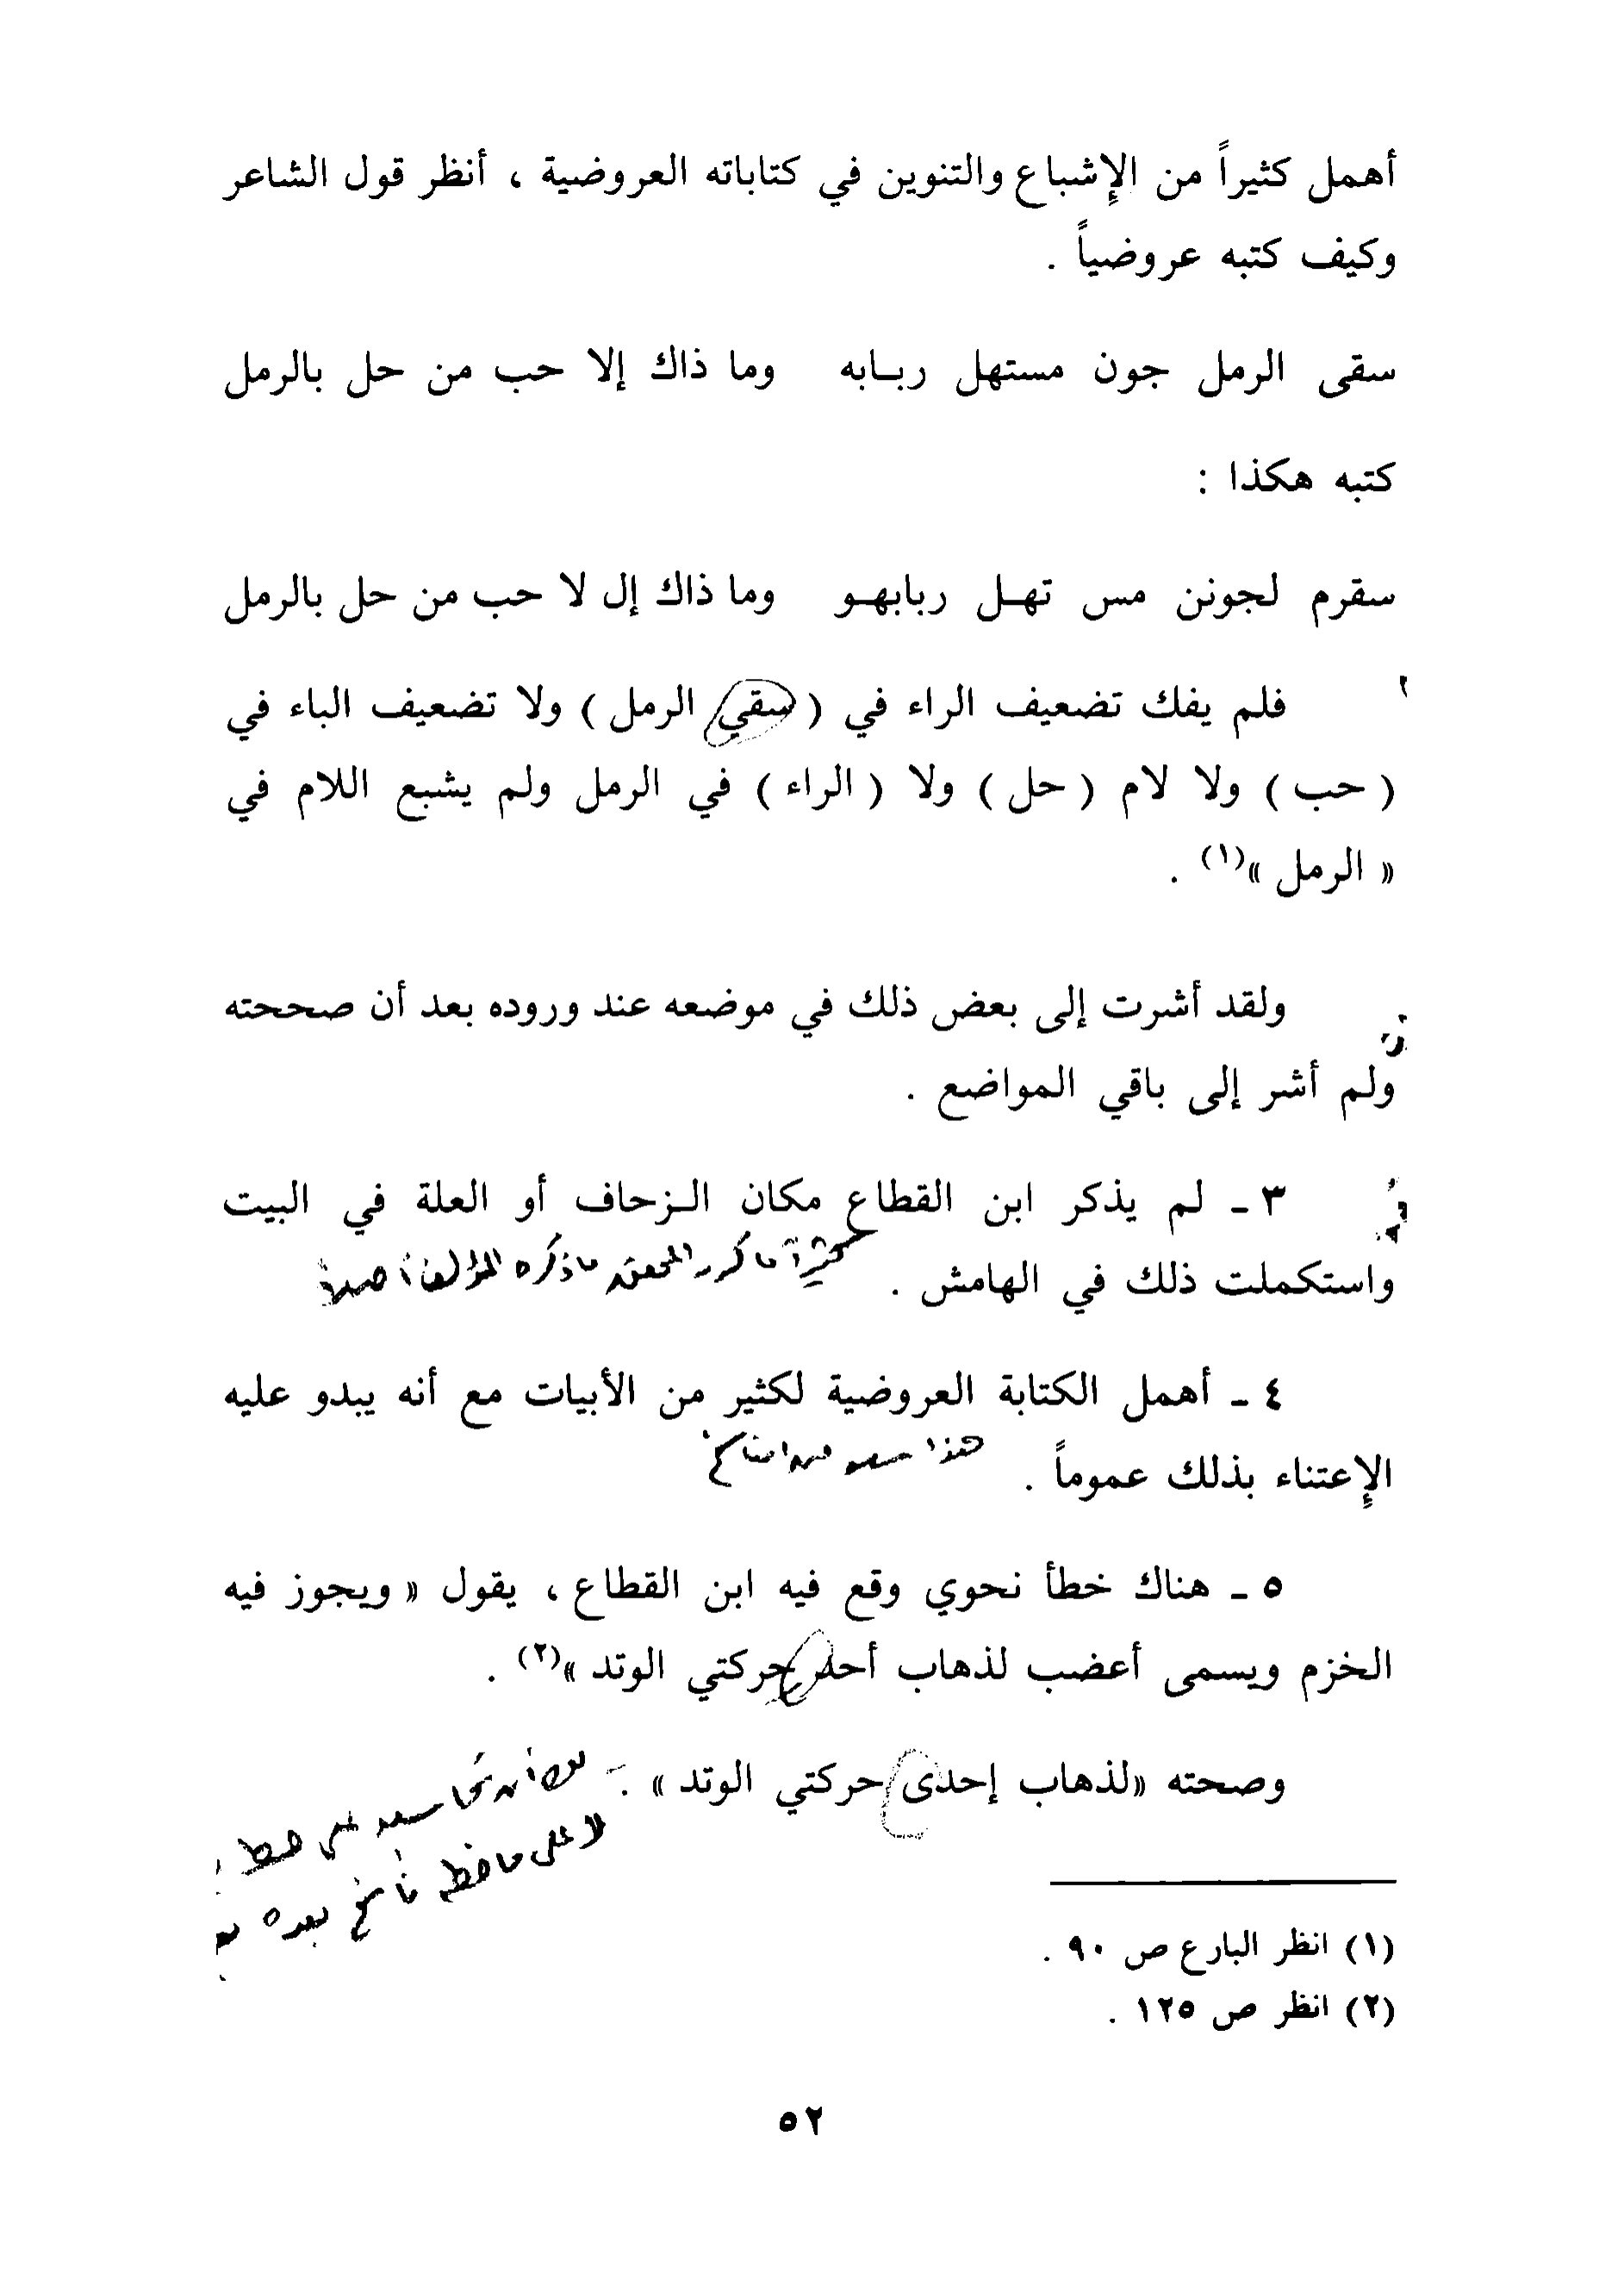 أهمل كثيراً من الإشباع والتنوين في كتاباته العروضية ، أنظر قول الشاعر
وكيف كتبه عروضياً .
سقى الرمل جون مستهل ربـابه    وما ذاك إلا حب من حل بالرمل
كتبه هكذا :
سقرم لجونن مس تهـل ربابهـو    وما ذاك إل لا حب من حل بالرمل
فلم يفك تضعيف الراء في ( سقي الرمل ) ولا تضعيف الباء في
( حب ) ولا لام ( حل ) ولا ( الراء ) في الرمل ولم يشبع اللام في
« الرمل »(١) .
ولقد أشرت إلى بعض ذلك في موضعه عند وروده بعد أن صححته
ولم أشر إلى باقي المواضع .
٣ ـ لم يذكر ابن القطاع مكان الـزحاف أو العلة في البيت
واستكملت ذلك في الهامش .
٤ ـ أهمل الكتابة العروضية لكثير من الأبيات مع أنه يبدو عليه
الإعتناء بذلك عموماً .
٥ ـ هناك خطأ نحوي وقع فيه ابن القطاع ، يقول « ويجوز فيه
الخزم ويسمى أعضب لذهاب أحد حركتي الوتد »(٢) .
وصحته «لذهاب إحدى حركتي الوتد » .
(١) انظر البارع ص ٩٠ .
(٢) انظر ص ١٢٥ .
٥٢